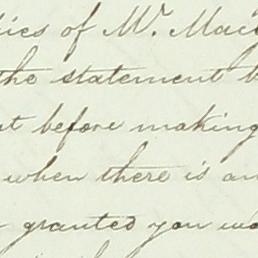 of Mr. Mac
the statement
before making
when there is an
granted you